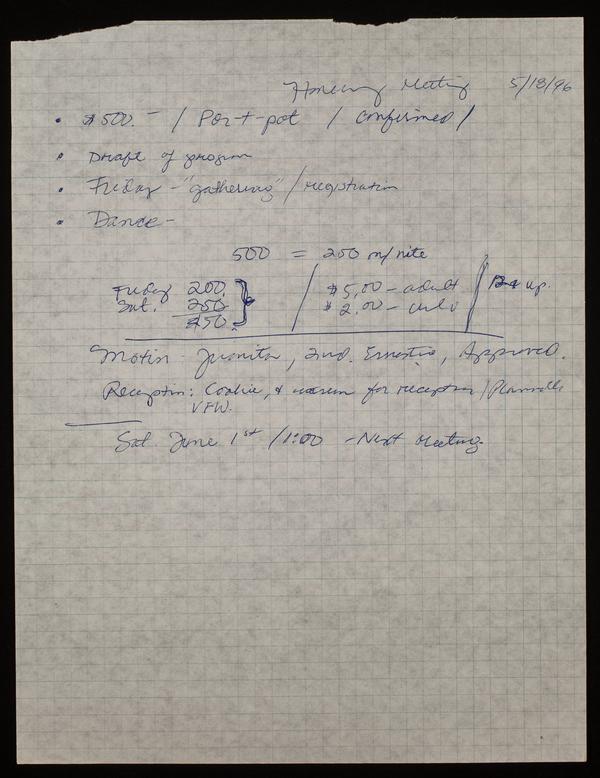 Meeting 5/18/96
• $500.- / Port-pot / confirmed /
• Draft of program
• Friday - "gathering" / registration
• Dance -
500 = 250 m/nite
Friday 200 } / $5.00 - adult / 12 & up.
Sat. 250 $2.00 - child
450
Motion - Juanita, 2nd. Ernestine, Approved.
Reception: Cookie, & for reception /
VFW.
Sat. June 1st / 1:00 - Next Meeting